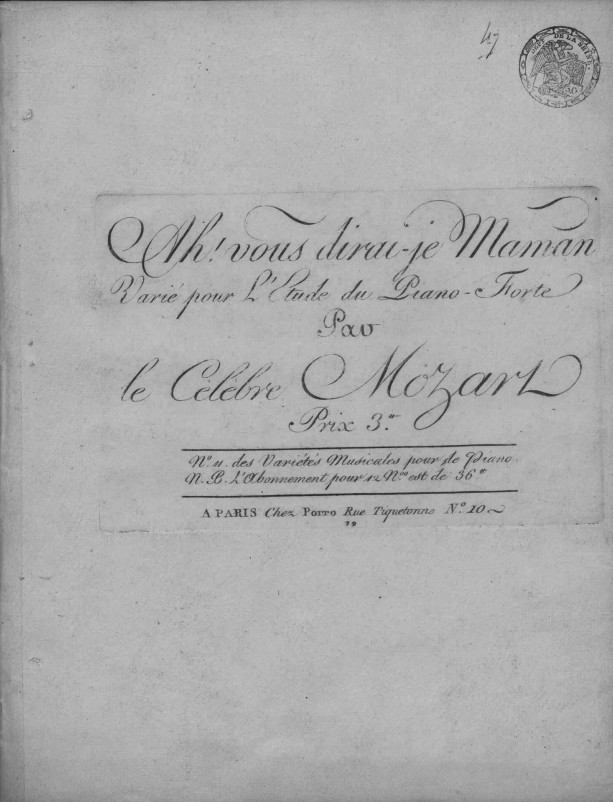 47
Ah! vous dirai-je Maman
Varié pour L'Etude du Piano-Forte
Par
le Célèbre Mozart
Prix 3.tt
N.o 11. des Variétés Musicales pour de Piano.
N.B. L'Abonnement pour 12 N.os est de 36.tt
A PARIS Chez PORRO Rue Tiquetonne N.o 10.
79